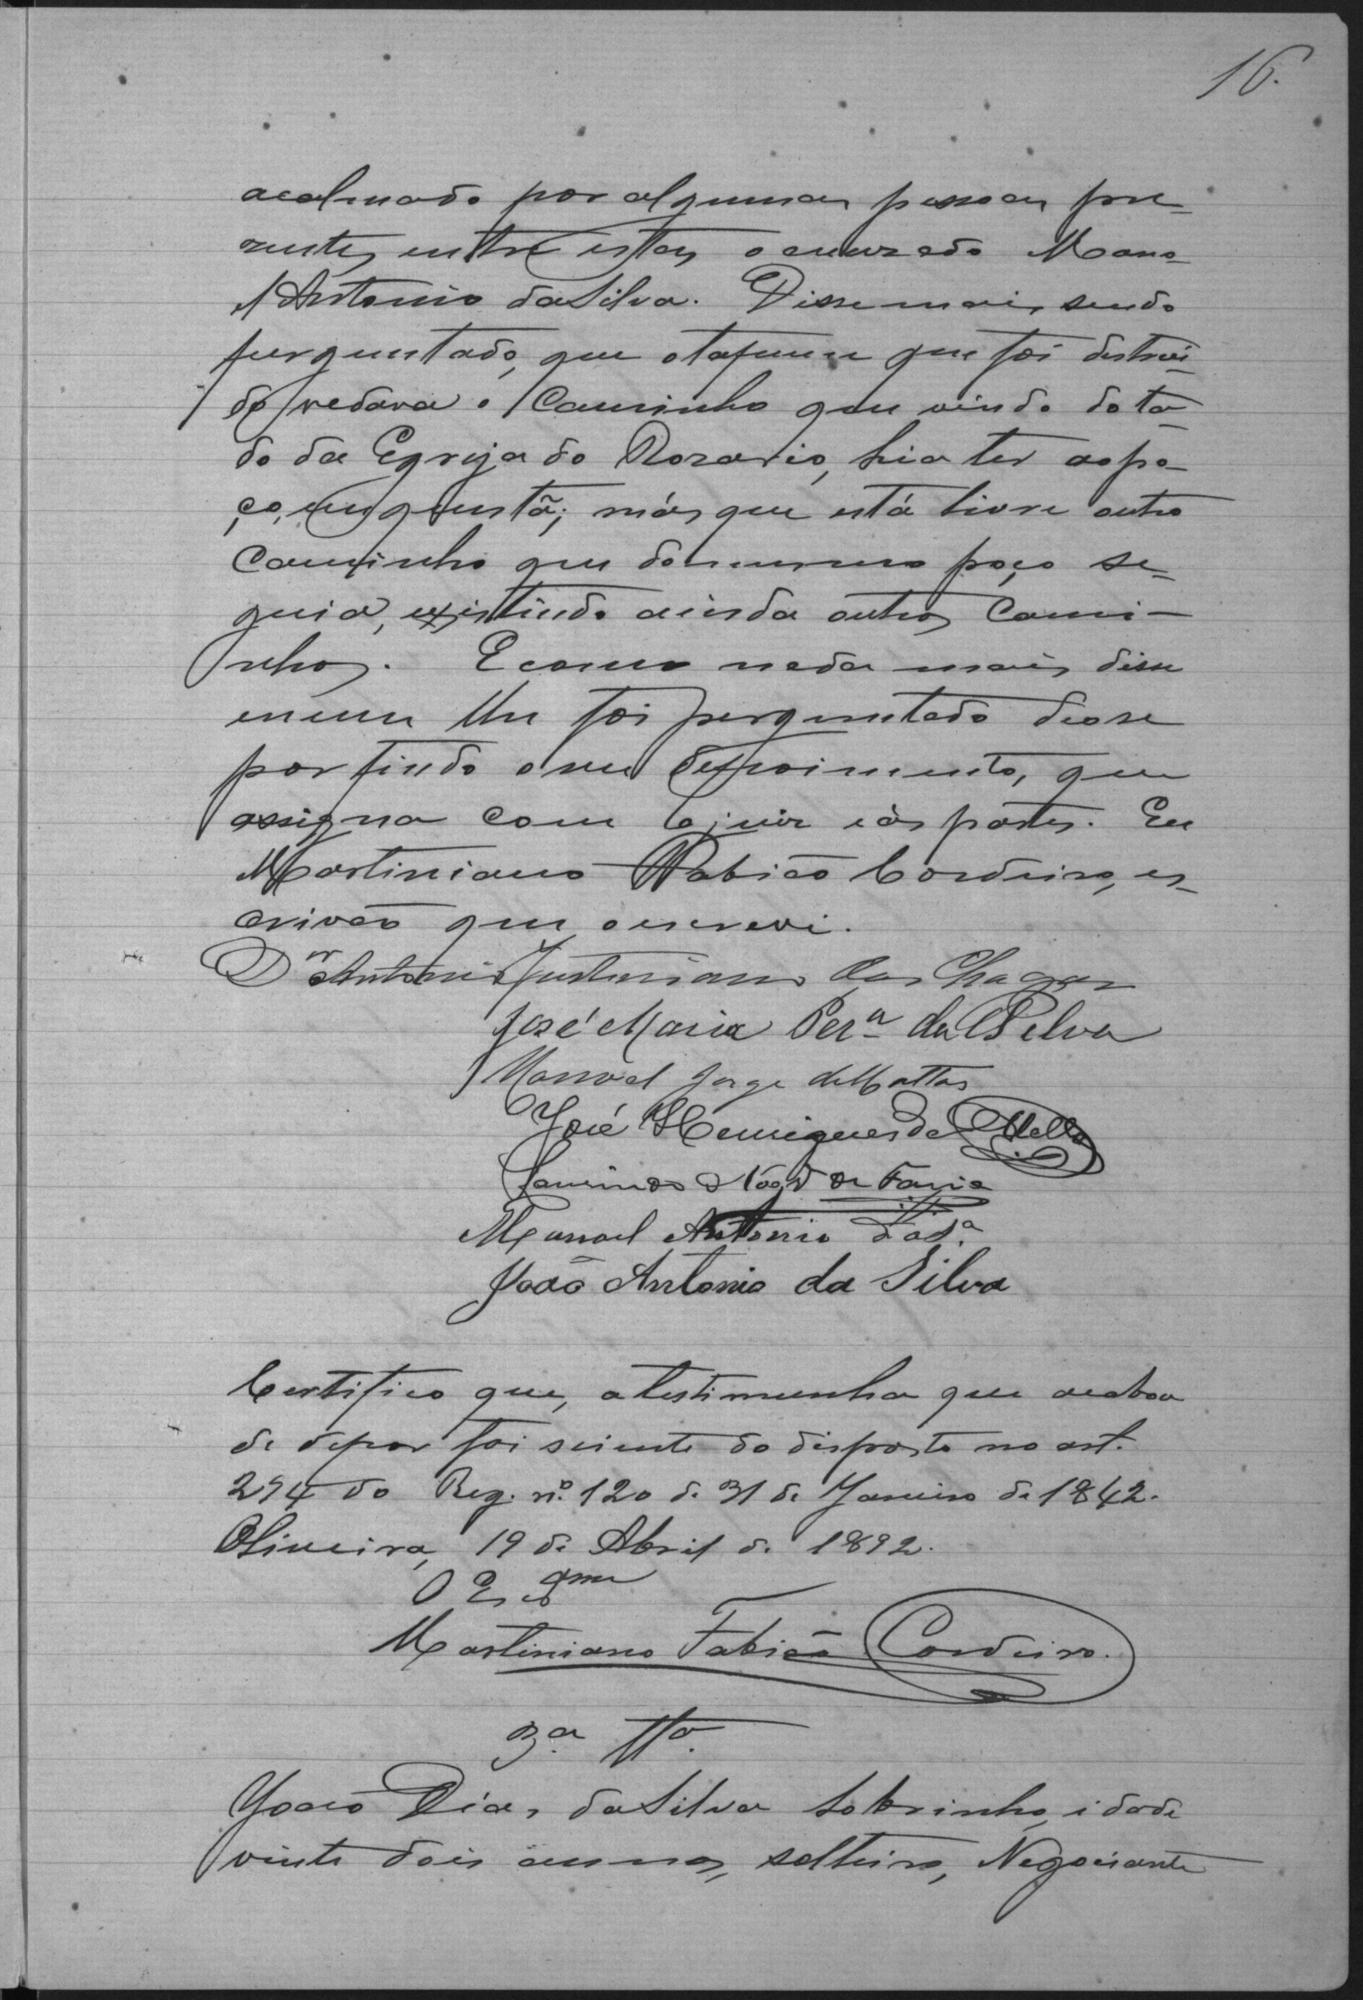 16.
acalmado por algumas pessoas pre-
zentes, entre estas o accuzado Mano-
el Antonio da Silva. Disse mais, sendo
perguntado, que o tapume que foi distrui-
do vedava o Caminho que vindo do la-
do da Egreja do Rozario, hia ter ao po-
ço, em questã; más que está livre outro
Caminho que do mesmo poço se-
guia, existindo ainda outros Cami-
nhos. E como nada mais disse
e nem lhe foi perguntado deo-se
por findo o seu depoimento, que
assigna com o juiz e ás partes. Eu
Martiniano Fabião Cordeiro, es-
crivão que o escrevi.
Dr. Antonio Justiniano das Chagas
José Maria Per.ª da Silva
Manoel Jorge de Mattos
José Henriques de Mello
de Faria
Manoel Antonio da S.ª
João Antonio da Silva
Certifico que, a testimunha que acabou
de depor foi sciente do disposto no art.
294 do Reg. nº. 120 de 31 de Janeiro de 1842.
Oliveira, 19 de Abril de 1892.
O Escr
Martiniano Fabião Cordeiro.
3.ª Tta.
João Dias da Silva Sobrinho, idade
vinte dois annos, solteiro, Negociante